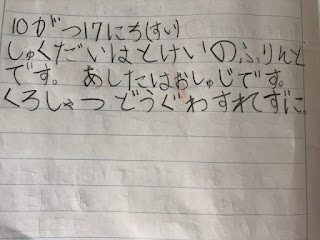 10がつ17にち(すい)
しゅくだいはとけいのふりんと
です。あしたはおしゅじです。
くろしゃつどうぐわすれてずに。